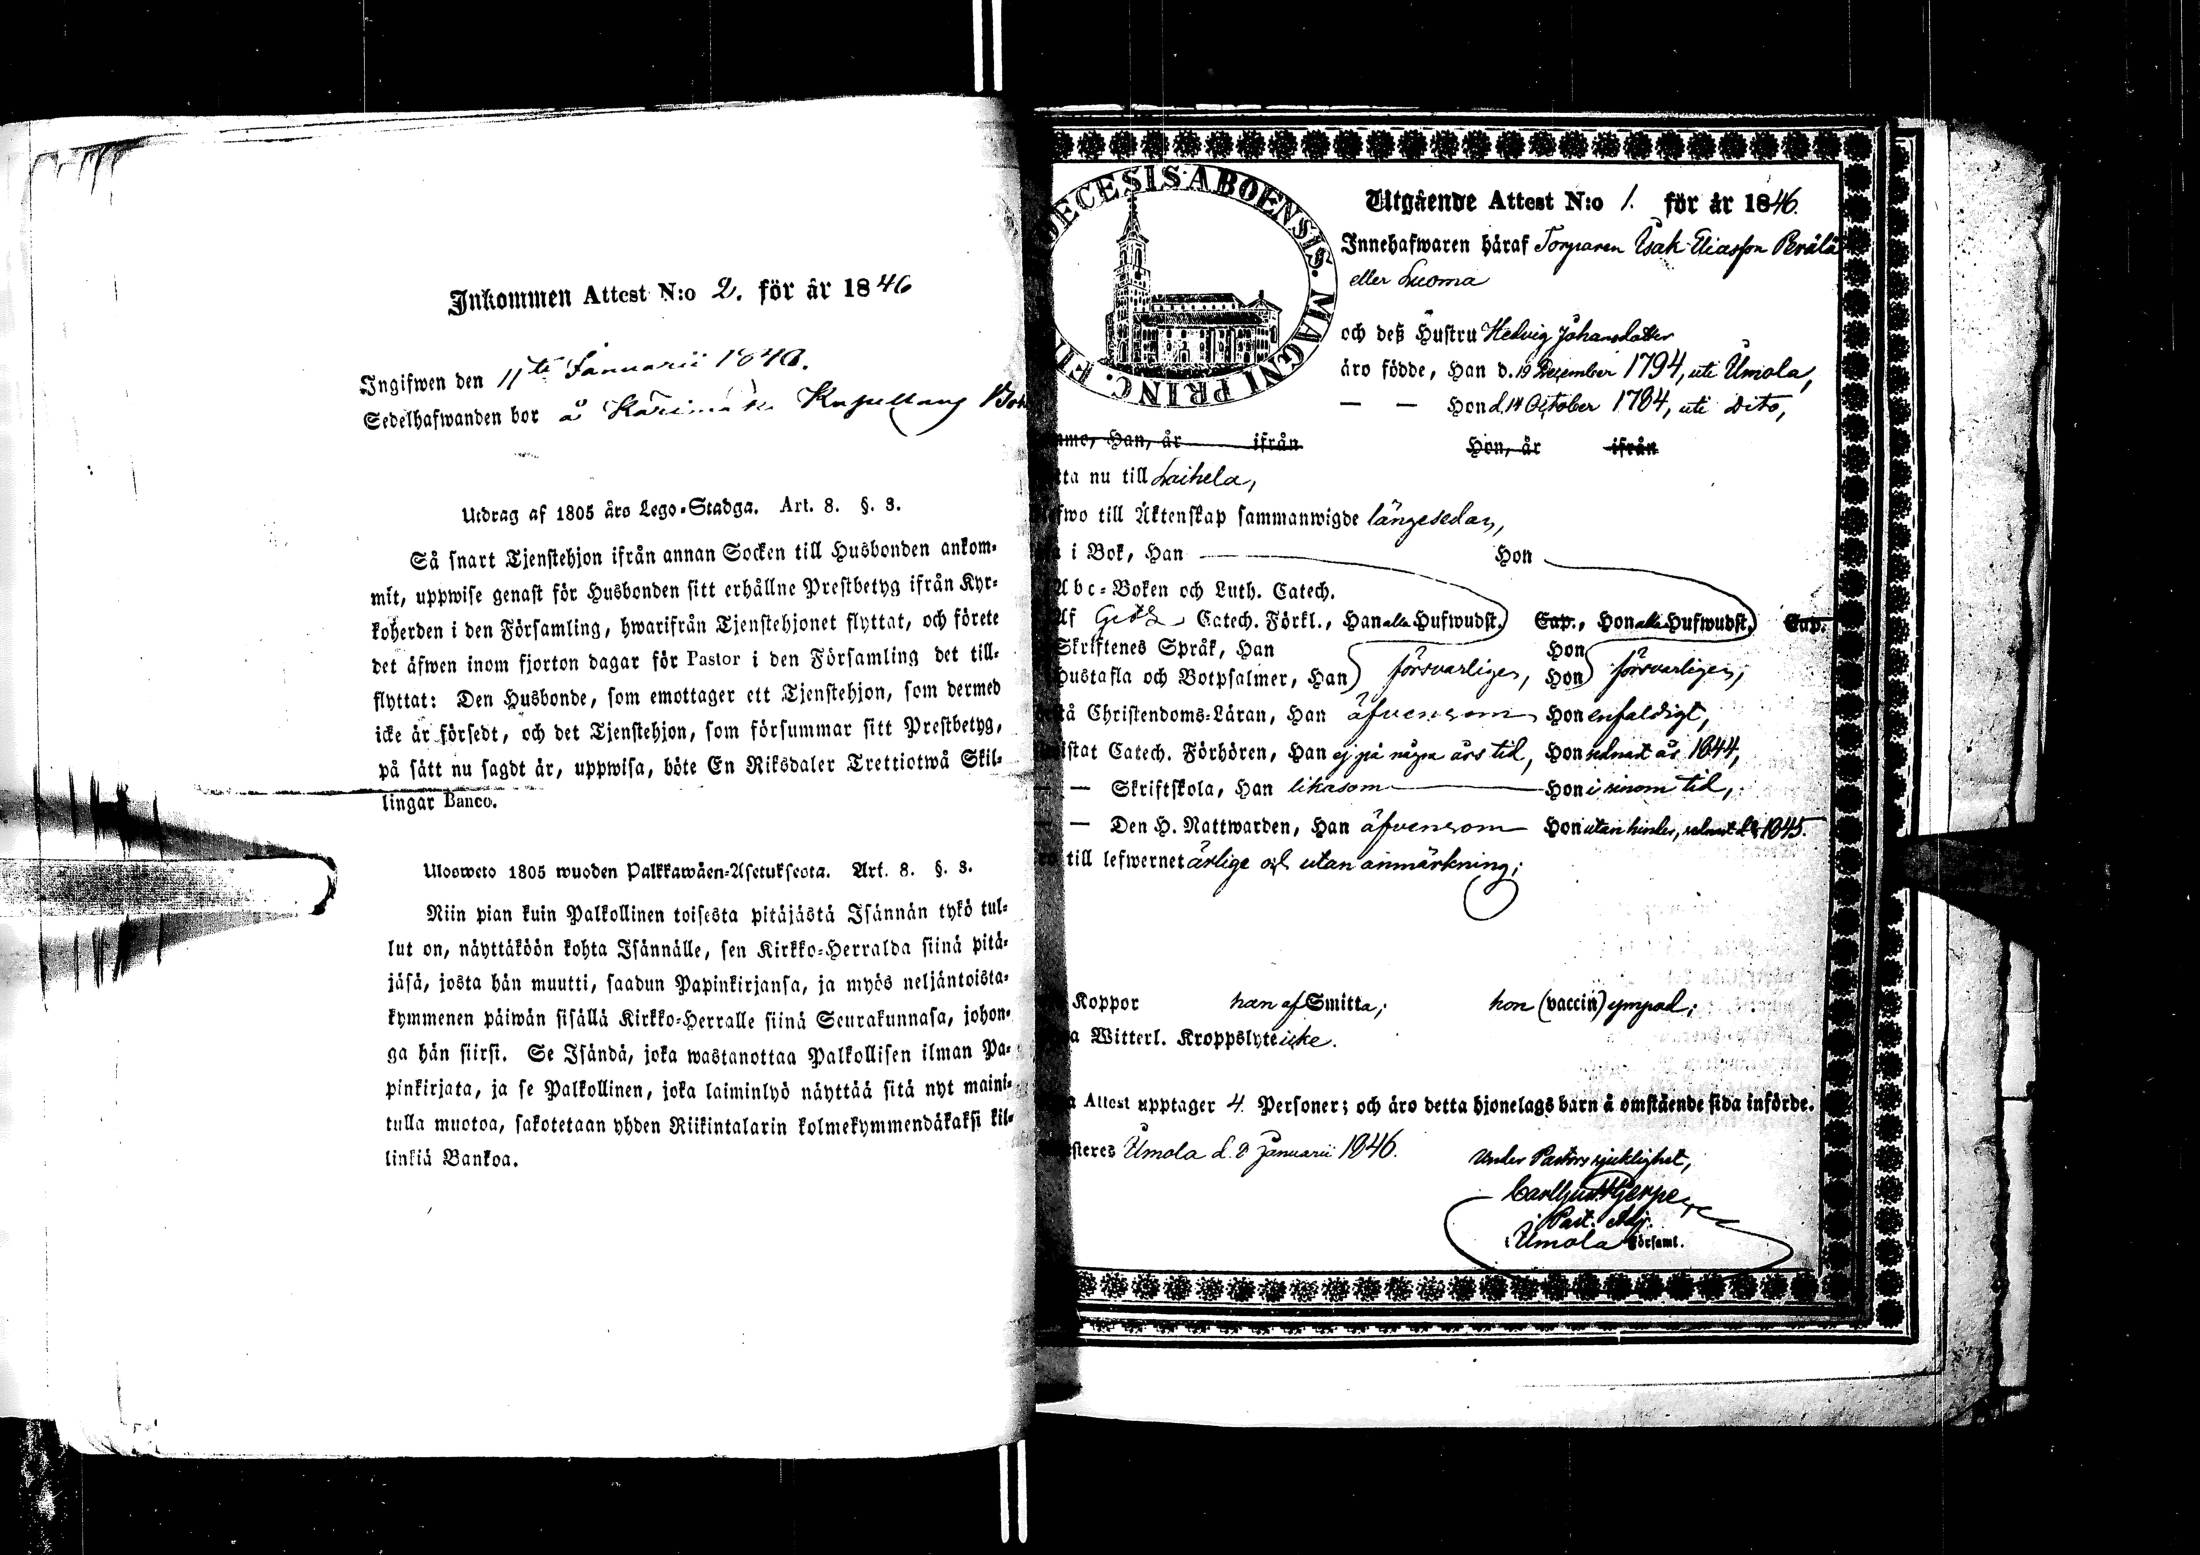 Inkommen Attest N:o 2. för år 1846
Ingifwen den 11te Januarii 1846.
Sedelhafwanden bor å Kapellans
Utdrag af 1805 års Lego-Stadga. Art. 8. §. 3.
Så snart Tjenstehjon ifrån annan Socken till Husbonden ankom-
mit, uppwise genast för Husbonden sitt erhållne Prestbetyg ifrån Kyr-
koherden i den Församling, hwarifrån Tjenstehjonet flyttat, och förete
det äfwen inom fjorton dagar för Pastor i den Församling det till-
flyttat: Den Husbonde, som emottager ett Tjenstehjon, som dermed
icke är försedt, och det Tjenstehjon, som försummar sitt Prestbetyg,
på sätt nu sagdt är, uppwisa, böte En Riksdaler Trettiotwå Skil-
lingar Banco.
Ulosweto 1805 wuoden Palkkawäen-Asetuksesta. Art. 8. §. 3.
Niin pian kuin Palkollinen toisesta pitäjästä Isännän tykö tul-
lut on, näyttäköön kohta Isännälle, sen Kirkko-Herralda siinä pitä-
jäsä, josta hän muutti, saadun Papinkirjansa, ja myös neljäntoista-
kymmenen päiwän sisällä Kirkko-Herralle siinä Seurakunnasa, johon-
ga hän siirsi. Se Isändä, joka wastanottaa Palkollisen ilman Pa-
pinkirjata, ja se Palkollinen, joka laiminlyö näyttää sitä nyt maini-
tulla muotoa, sakotetaan yhden Riikintalarin kolmekymmendäkaksi kil-
linkiä Bankoa.
DECESIS ABOENSIS. MAGNI PRINC. FI
Utgående Attest N:o 1. för år 1846.
Innehafwaren häraf Torparen Isak Eliasson Perälä
eller Luoma
och deß Hustru Hedvig Johansdotter
äro födde, Han d. 19 December 1794, uti Ilmola,
— — Hon d. 14 October 1784, uti Dito,
Han, år ifrån Hon, år ifrån
tta nu till Laihela,
fwo till Äktenskap sammanwigde längesedan,
i Bok, Han Hon
Abc-Boken och Luth. Catech.
Af Catech. Förkl., Han alla Hufwudst. Cap., Hon alla Hufwudst. Cap.
Skriftenes Språk, Han Hon
Hustafla och Botpsalmer, Han försvarligen, Hon försvarligen,
stå Christendoms-Läran, Han äfvensom Hon enfaldigt,
istat Catech. Förhören, Han ej på några års tid, Hon sednast år 1844,
— — Skriftskola, Han likasom Hon i sinom tid,
— — Den H. Nattwarden, Han äfvensom Hon utan hinder, sednast 1845.
till lefwernet ärlige och utan anmärkning;
Koppor han af Smitta; hon (vaccin) ympad;
a Witterl. Kroppslyte icke.
a Attest upptager 4 Personer; och äro detta hjonelags barn å omstående sida införde.
steres Ilmola d. 8 Januarii 1846.
Under Pastors sjuklighet,
Past. Adj.
i Ilmola Församl.